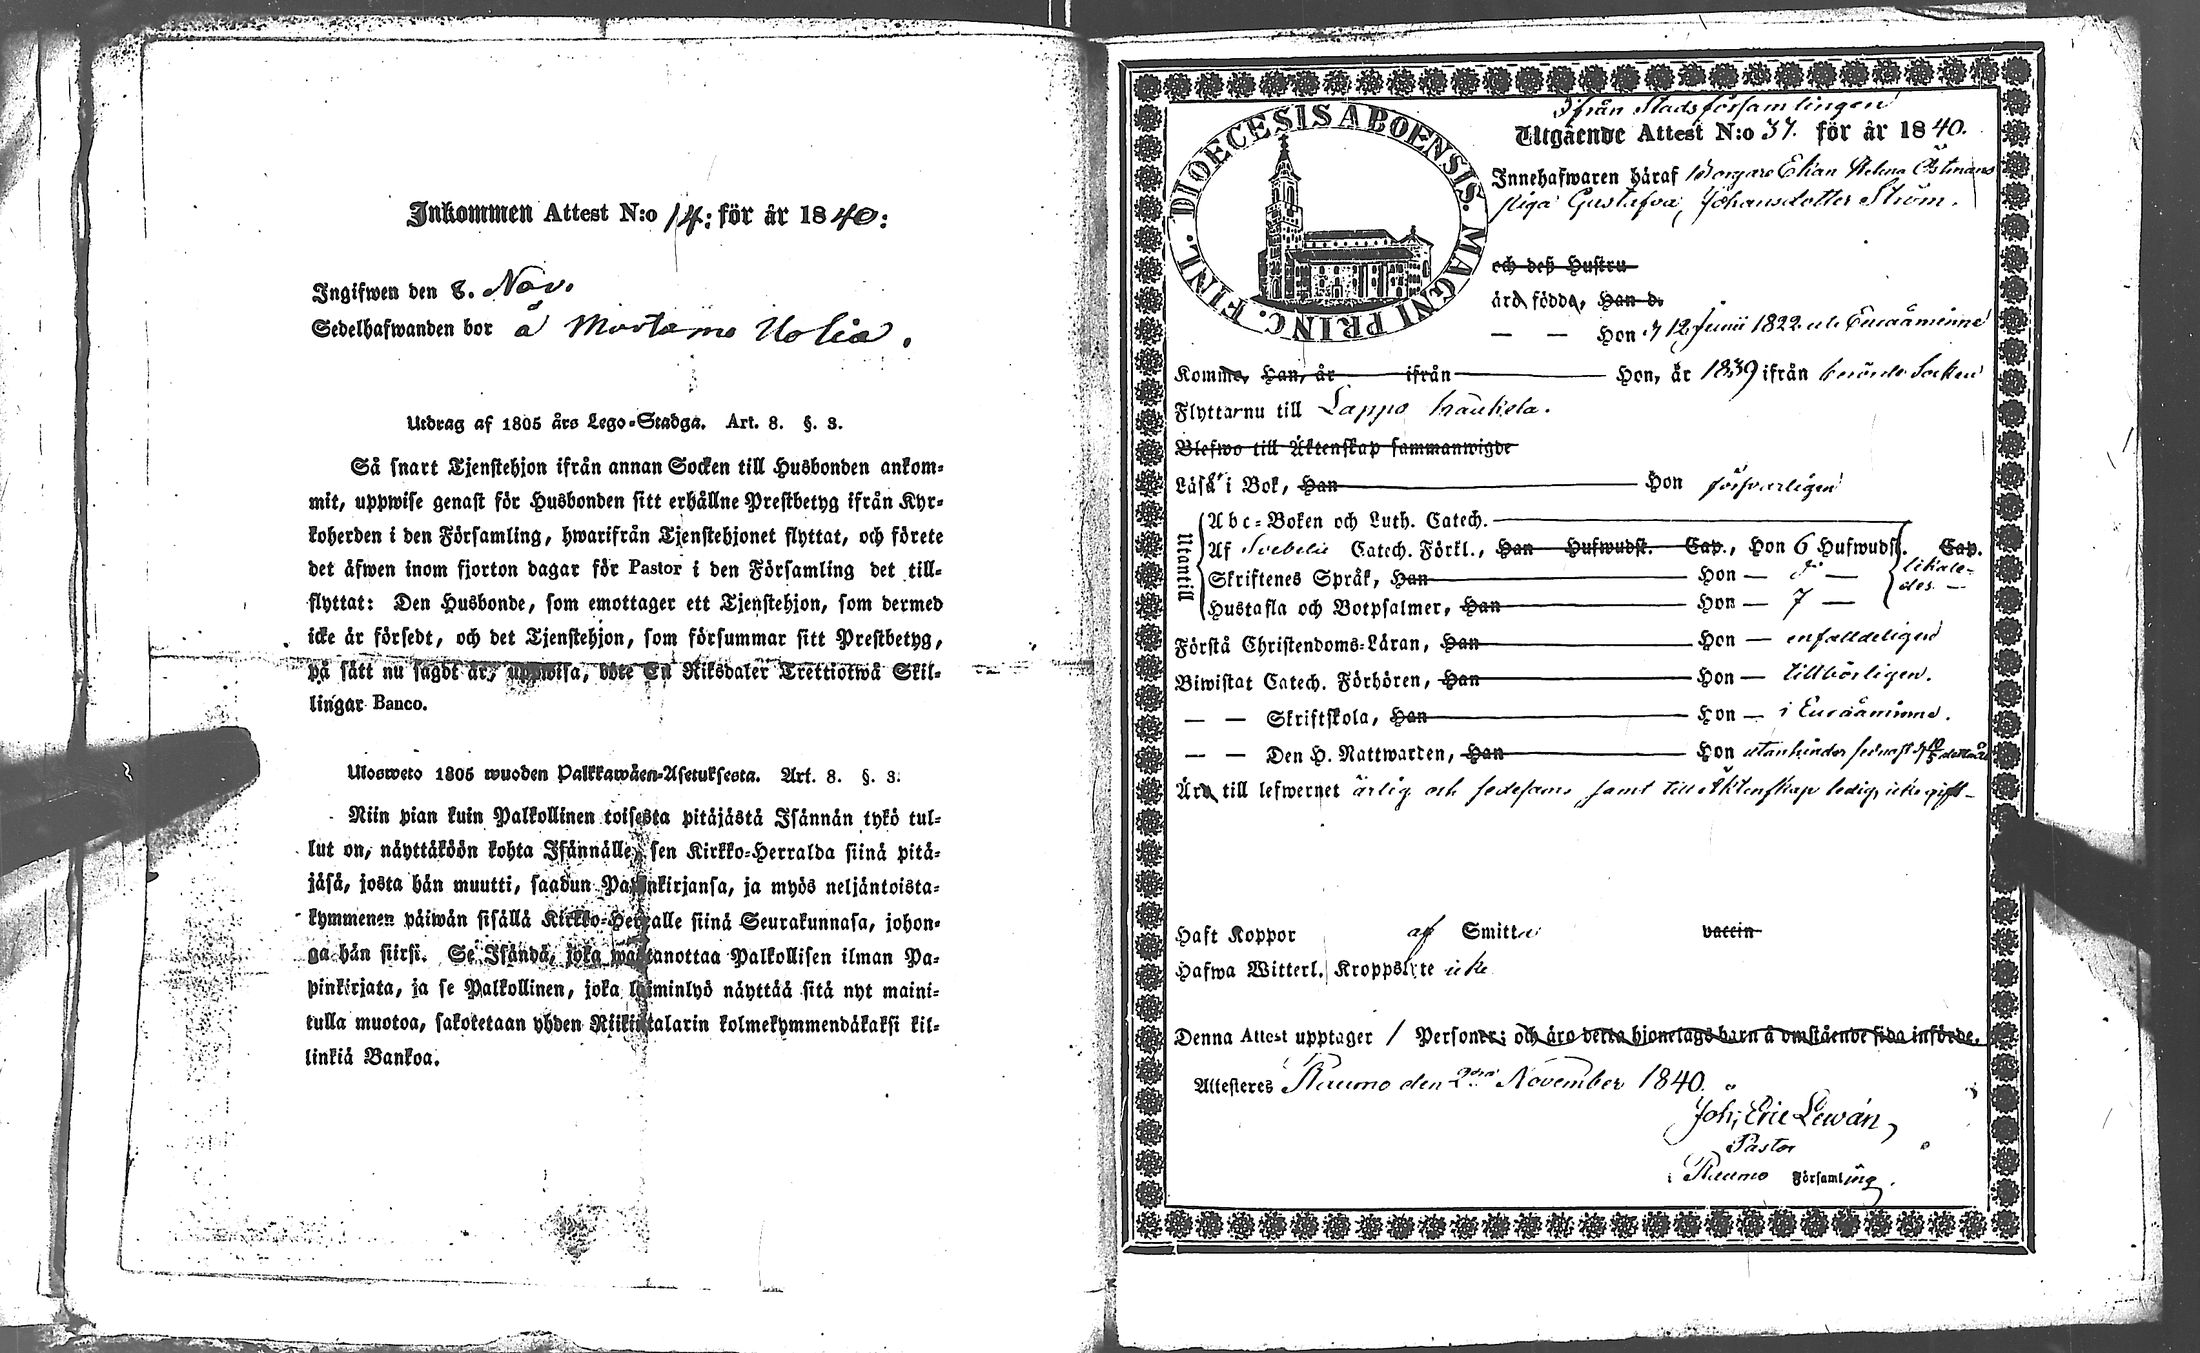 Inkommen Attest N:o 14: för år 1840:
Ingifwen den 8. Nov.
Sedelhafwanden bor å
Utdrag af 1805 års Lego-Stadga. Art. 8. §. 3.
Så snart Tjenstehjon ifrån annan Socken till Husbonden ankom-
mit, uppwise genast för Husbonden sitt erhållne Prestbetyg ifrån Kyr-
koherden i den Församling, hwarifrån Tjenstehjonet flyttat, och förete
det äfwen inom fjorton dagar för Pastor i den Församling det till-
flyttat: Den Husbonde, som emottager ett Tjenstehjon, som dermed
icke är försedt, och det Tjenstehjon, som försummar sitt Prestbetyg,
på sätt nu sagdt är, uppwisa, böte En Riksdaler Trettiotwå Skil-
lingar Banco.
Ulosweto 1805 wuoden Palkkawäen-Asetuksesta. Art. 8. §. 3.
Niin pian kuin Palkollinen toisesta pitäjästä Isännän tykö tul-
lut on, näyttäköön kohta Isännälle, sen Kirkko-Herralda siinä pitä-
jäsä, josta hän muutti, saadun Papinkirjansa, ja myös neljäntoista-
kymmenen päiwän sisällä Kirkko-Herralle siinä Seurakunnasa, johon-
ga hän siirsi. Se Isändä, joka wastanottaa Palkollisen ilman Pa-
pinkirjata, ja se Palkollinen, joka laiminlyö näyttää sitä nyt maini-
tulla muotoa, sakotetaan yhden Riikintalarin kolmekymmendäkaksi kil-
linkiä Bankoa.
DIOECESIS ABOENSIS. MAGNI PRINC. FINL.
Ifrån Stadsförsamlingen
Utgående Attest N:o 37. för år 1840.
Innehafwaren häraf Borgare Enkan Helena Östmans
piga Gustafva, Johansdotter Ström.
och deß Hustru
äro födde, Han d.
— — Hon d 12 Junii 1822 uti Euraåminne
Komme, Han, år ifrån Hon, år 1839 ifrån berörde Socken
Flyttar nu till Lappo
Blefwo till Äktenskap sammanwigde
Läsa i Bok, Han Hon försvarligen
Utantill
Abc-Boken och Luth. Catech.
Af Svebelii Catech. Förkl., Han Hufwudst. Cap., Hon 6 Hufwudst. Cap.
Skriftenes Språk, Han Hon —
likale-
des. —
Hustafla och Botpsalmer, Han Hon —
Förstå Christendoms-Läran, Han Hon — enfalldeligen
Biwistat Catech. Förhören, Han Hon — tillbörligen.
— — Skriftskola, Han Hon — i Euraåminne.
— — Den H. Nattwarden, Han Hon utan hinder sednast d
Äro till lefwernet ärlig och sedesam, samt till Äktenskap ledig, icke gift-
Haft Koppor af Smitta vaccin
Hafwa Witterl. Kroppslyte icke
Denna Attest upptager 1 Personer; och äro detta hjonelags barn å omstående sida införde.
Attesteres Raumo den 2dra November 1840.
Joh: Eric Lewán,
Pastor
i Raumo Församling.